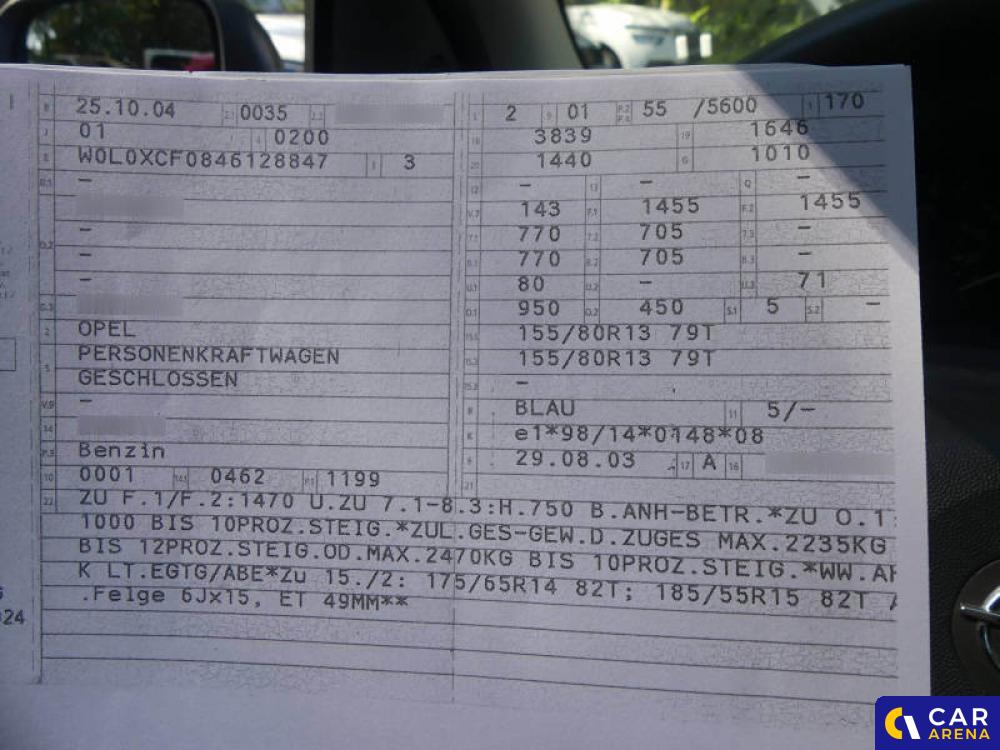 B 25.10.04 2.1 0035 2.2
J 01 4 0200
E W0L0XCF0846128847 3 3
D.1 –
–
D.2 –
–
D.3
2 OPEL
5 PERSONENKRAFTWAGEN
GESCHLOSSEN
V.9 –
14
P.3 Benzin
10 0001 14.1 0462 P.1 1199
L 2 9 01 P.2 P.4 55 /5600 T 170
18 3839 19 1646
20 1440 G 1010
12 – 13 – Q –
V.7 143 F.1 1455 F.2 1455
7.1 770 7.2 705 7.3 –
8.1 770 8.2 705 8.3 –
U.1 80 U.2 – U.3 71
O.1 950 O.2 450 S.1 5 S.2 –
15.1 155/80R13 79T
15.2 155/80R13 79T
15.3 –
R BLAU 11 5/–
K e1*98/14*0148*08
6 29.08.03 17 A 16
21
22 ZU F.1/F.2:1470 U.ZU 7.1-8.3:H.750 B.ANH-BETR.*ZU O.1:
1000 BIS 10PROZ.STEIG.*ZUL.GES-GEW.D.ZUGES MAX.2235KG
BIS 12PROZ.STEIG.OD.MAX.2470KG BIS 10PROZ.STEIG.*WW.AH
K LT.EGTG/ABE*Zu 15./2: 175/65R14 82T; 185/55R15 82T /
.Felge 6Jx15, ET 49MM**
024
CAR
ARENA